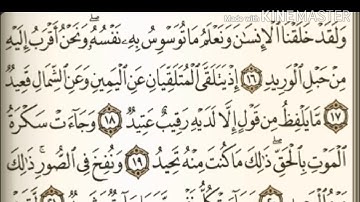 Made with KINEMASTER
وَلَقَدْ خَلَقْنَا ٱلْإِنسَٰنَ وَنَعْلَمُ مَا تُوَسْوِسُ بِهِۦ نَفْسُهُۥ ۖ وَنَحْنُ أَقْرَبُ إِلَيْهِ
مِنْ حَبْلِ ٱلْوَرِيدِ ۝١٦ إِذْ يَتَلَقَّى ٱلْمُتَلَقِّيَانِ عَنِ ٱلْيَمِينِ وَعَنِ ٱلشِّمَالِ قَعِيدٌ
۝١٧ مَّا يَلْفِظُ مِن قَوْلٍ إِلَّا لَدَيْهِ رَقِيبٌ عَتِيدٌ ۝١٨ وَجَآءَتْ سَكْرَةُ
ٱلْمَوْتِ بِٱلْحَقِّ ۖ ذَٰلِكَ مَا كُنتَ مِنْهُ تَحِيدُ ۝١٩ وَنُفِخَ فِى ٱلصُّورِ ۚ ذَٰلِكَ